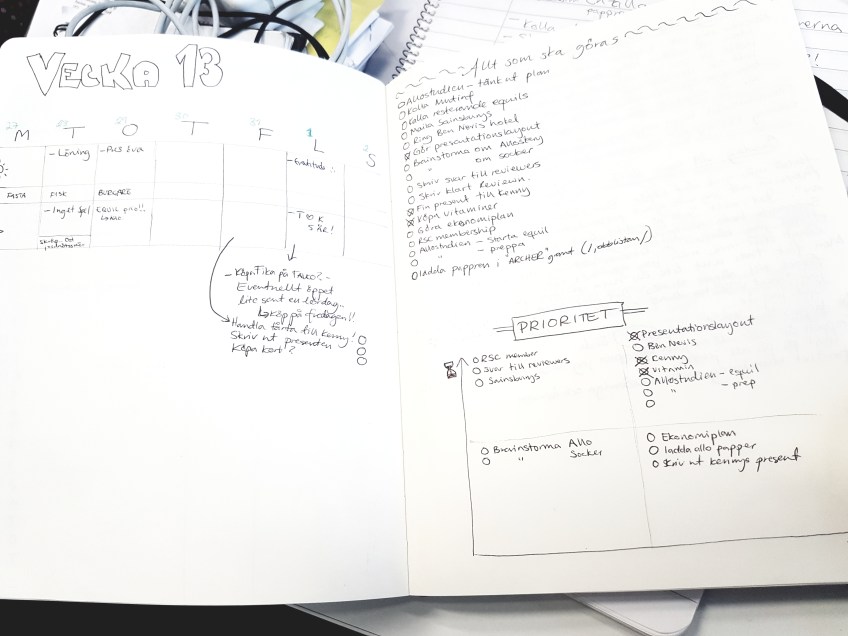 VECKA 13
27 28 29 30 31 1 2
M T O T F L S
- Löning - Plis öva
FASTA FISK BURGARE
- Inget spel EQUIL prep!!
- TOK
SÄR!
- Köpa Fika på TALKO? -
Eventuellt öppet
lite sent en lördag..
köp på fredagen!!
Handla tårta till Kenny!
Skriv ut presenten
Köpa kort?
Kolla
Allt som ska göras
Allostudien - tänk ut plan
Kolla
Kolla resterande equils
Maila Sainsburys
Ring Ben Nevis hotel
Gör presentationslayout
Brainstorma om Allosteng
" om socker
Skriv svar till reviewers
Skriv klart Reviewin.
Fin present till Kenny
Köpa vitaminer
Göra ekonomiplan
RSC membership
Allostudien - starta equil
" - preppa
ladda pappren i "ARCHER"
PRIORITET
RSC member
Svar till reviewers
Sainsburys
Presentationslayout
Ben Nevis
Kenny
vitamin
Allostudien - equil
" - prep
Brainstorma Allo
" Socker
Ekonomiplan
ladda allo papper
Skriv ut kennys present